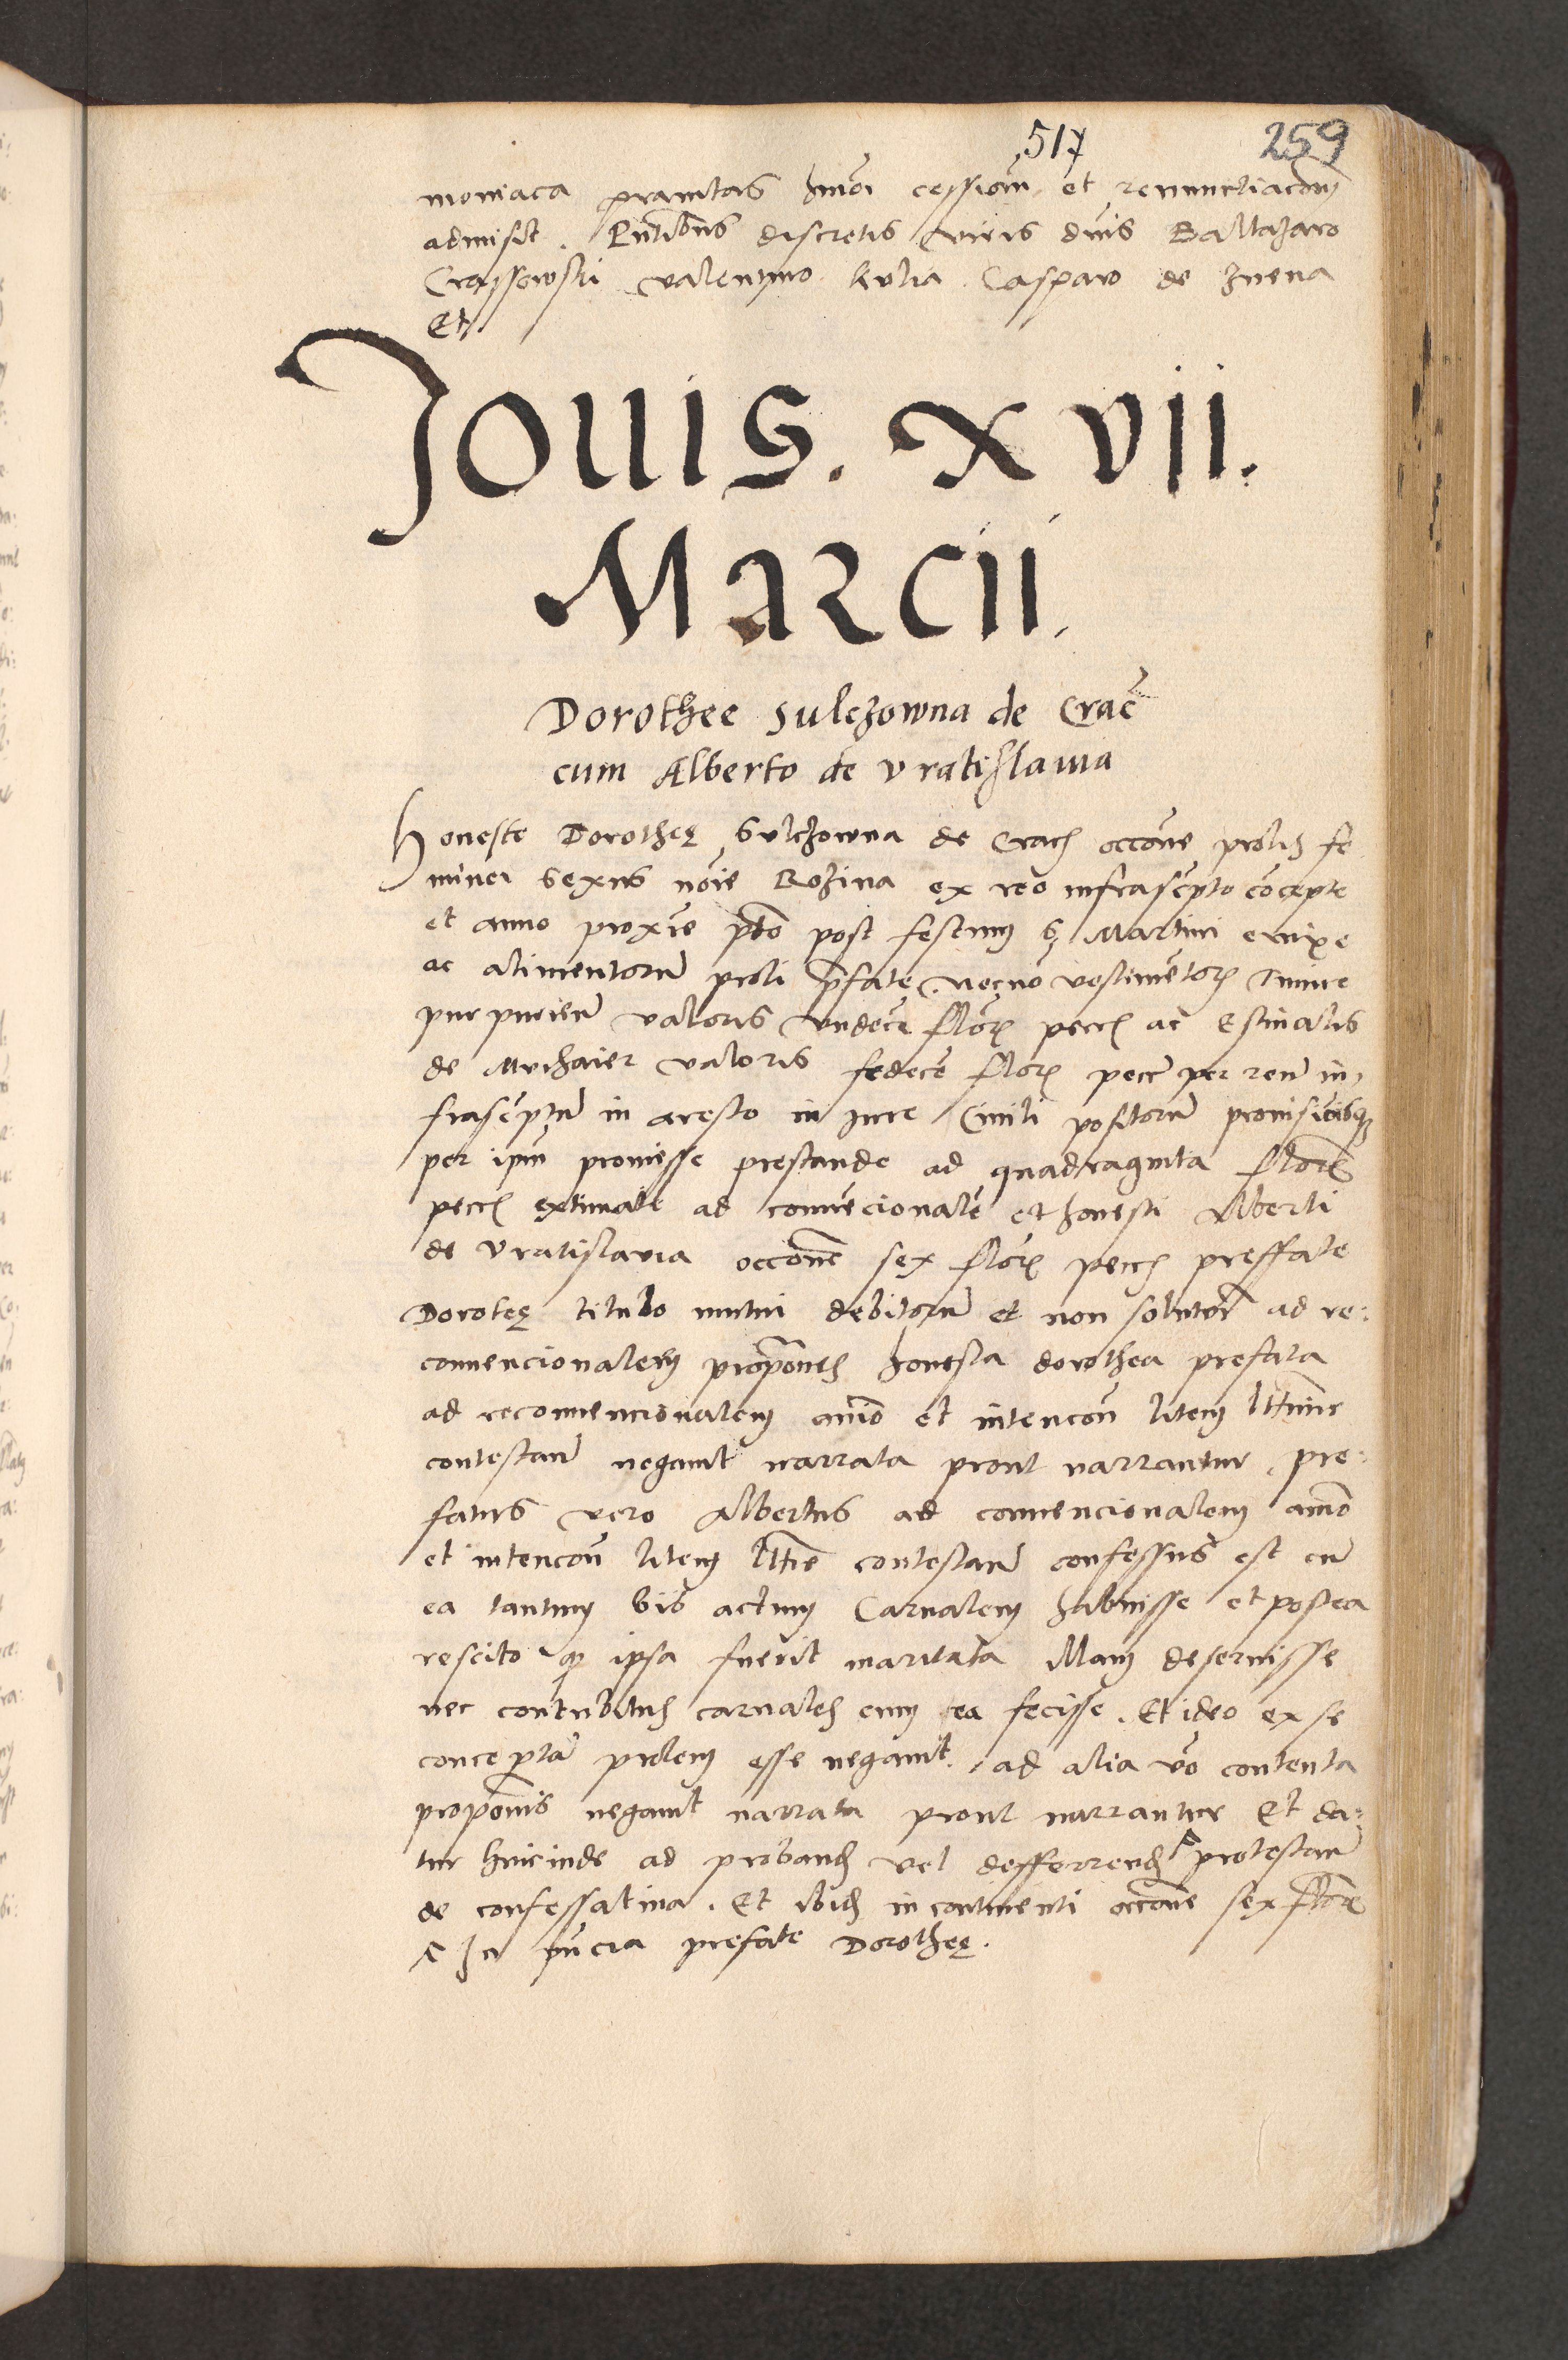 517 259
moniaca pravitas hmoi cessioni et renunctiacioni
admisit. Pntibus discretis viris dnis Baltazaro
Crassowski Valentino Kulia Casparo de Znena
Et
Jouis. xvii.
Marcii.
Dorothee Sulczowna de Crac
cum Alberto de Vratislauia
Honeste Dorotheę Sulczowna de Crac occone prolis fe
minei sexus noie Rozina ex reo infrascpto cocepte
et anno proxie pto post festum S. Martini enixe
ac alimentorum proli pfate necno vestimetor Tunice
purpuriem valoris vndeci flor pecc ac Estivalis
de Muchaier valoris sedece flor pecc per reum in
frascptum in aresto in iure Ciuili positorum promissionibusq
per ipm promisse prestande ad quadraginta floren
pecc extimate ad convecionale et honesti Alberti
de Vratislavia occone sex flor pecc preffate
Doroteę titulo mutui debitorum et non solutor ad re:
convencionalem propones honesta dorothea prefata
ad reconvencionalem animo et intencon litem lttime
contestan negavit narrata prout narrantur, pre:
fatus vero Albertus ad convencionalem animo
et intencon litem lttie contestan confessus est cum
ea tantum bis actum Carnalem habuisse et postea
rescito q ipsa fuerit maritata illam deseruisse
nec contubitus carnales cum ea fecisse. Et ideo ex se
conceptam prolem esse negavit. ad alia vo contenta
proponis negavit narrata prout narrantur Et da:
tur hincinde ad proband vel defferrend protestan
de confessatiua. Et ibid in continenti occone sex floren
In pncia prefate Dorotheę.